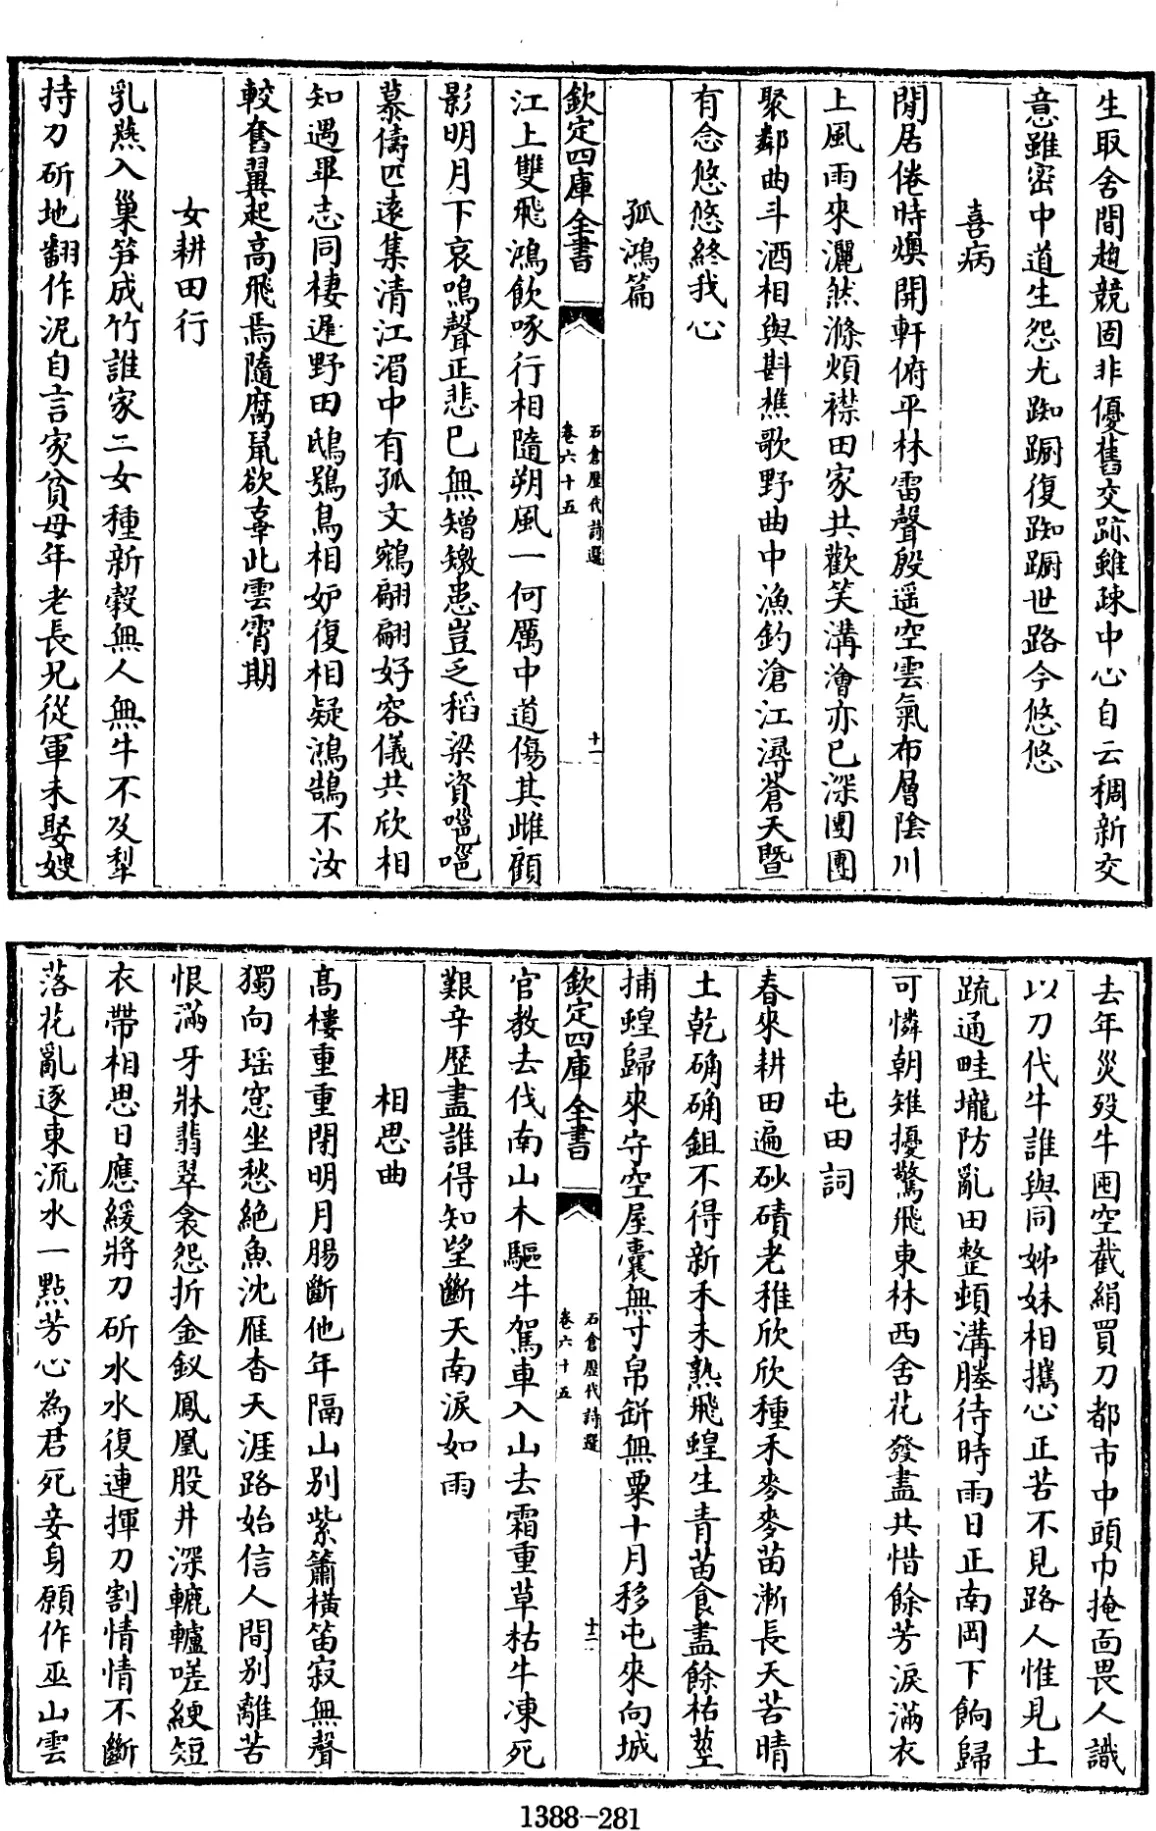 生取舍間趨競固非優舊交跡雖疎中心自云稠新交
意雖密中道生怨尤踟蹰復踟蹰世路今悠悠
喜病
閒居倦時燠開軒俯平林雷聲殷遥空雲氣布層陰川
上風雨來灑然滌煩襟田家共歡笑溝澮亦已深團團
聚鄰曲斗酒相與斟樵歌野曲中漁釣滄江潯蒼天暨
有念悠悠終我心
孤鴻篇
欽定四庫全書
石倉歷代詩選
卷六十五
十一
江上雙飛鴻飲啄行相隨朔風一何厲中道傷其雌顧
影明月下哀鳴聲正悲已無矰繳患豈乏稻梁資嗈嗈
慕儔匹遠集清江湄中有孤文鵷翩翩好容儀共欣相
知遇畢志同棲遲野田鴟鴞鳥相妒復相疑鴻鵠不汝
較奮翼起高飛焉隨腐䑕欲辜此雲霄期
女耕田行
乳燕入巢笋成竹誰家二女種新糓無人無牛不及犁
持刀斫地翻作泥自言家貧母年老長兄從軍未娶嫂
去年災殁牛囤空截絹買刀都市中頭巾掩面畏人識
以刀代牛誰與同姊妹相攜心正苦不見路人惟見土
疏通畦壠防亂田整頓溝塍待時雨日正南岡下餉歸
可憐朝雉擾驚飛東林西舍花發盡共惜餘芳淚滿衣
屯田詞
春來耕田遍砂磧老稚欣欣種禾麥麥苗漸長天苦晴
土乾确确鉏不得新禾未熟飛蝗生青苗食盡餘枯莖
捕蝗歸來守空屋囊無寸帛缾無粟十月移屯來向城
欽定四庫全書
石倉歷代詩選
卷六十五
十二
官教去伐南山木驅牛駕車入山去霜重草枯牛凍死
艱辛歷盡誰得知望斷天南淚如雨
相思曲
高樓重重閉明月腸斷他年隔山別紫簫橫笛寂無聲
獨向瑶窓坐愁絶魚沈雁杳天涯路始信人間別離苦
恨滿牙牀翡翠衾怨折金釵鳳凰股井深轆轤嗟綆短
衣帶相思日應緩將刀斫水水復連揮刀割情情不斷
落花亂逐東流水一點芳心為君死妾身願作巫山雲
1388-281